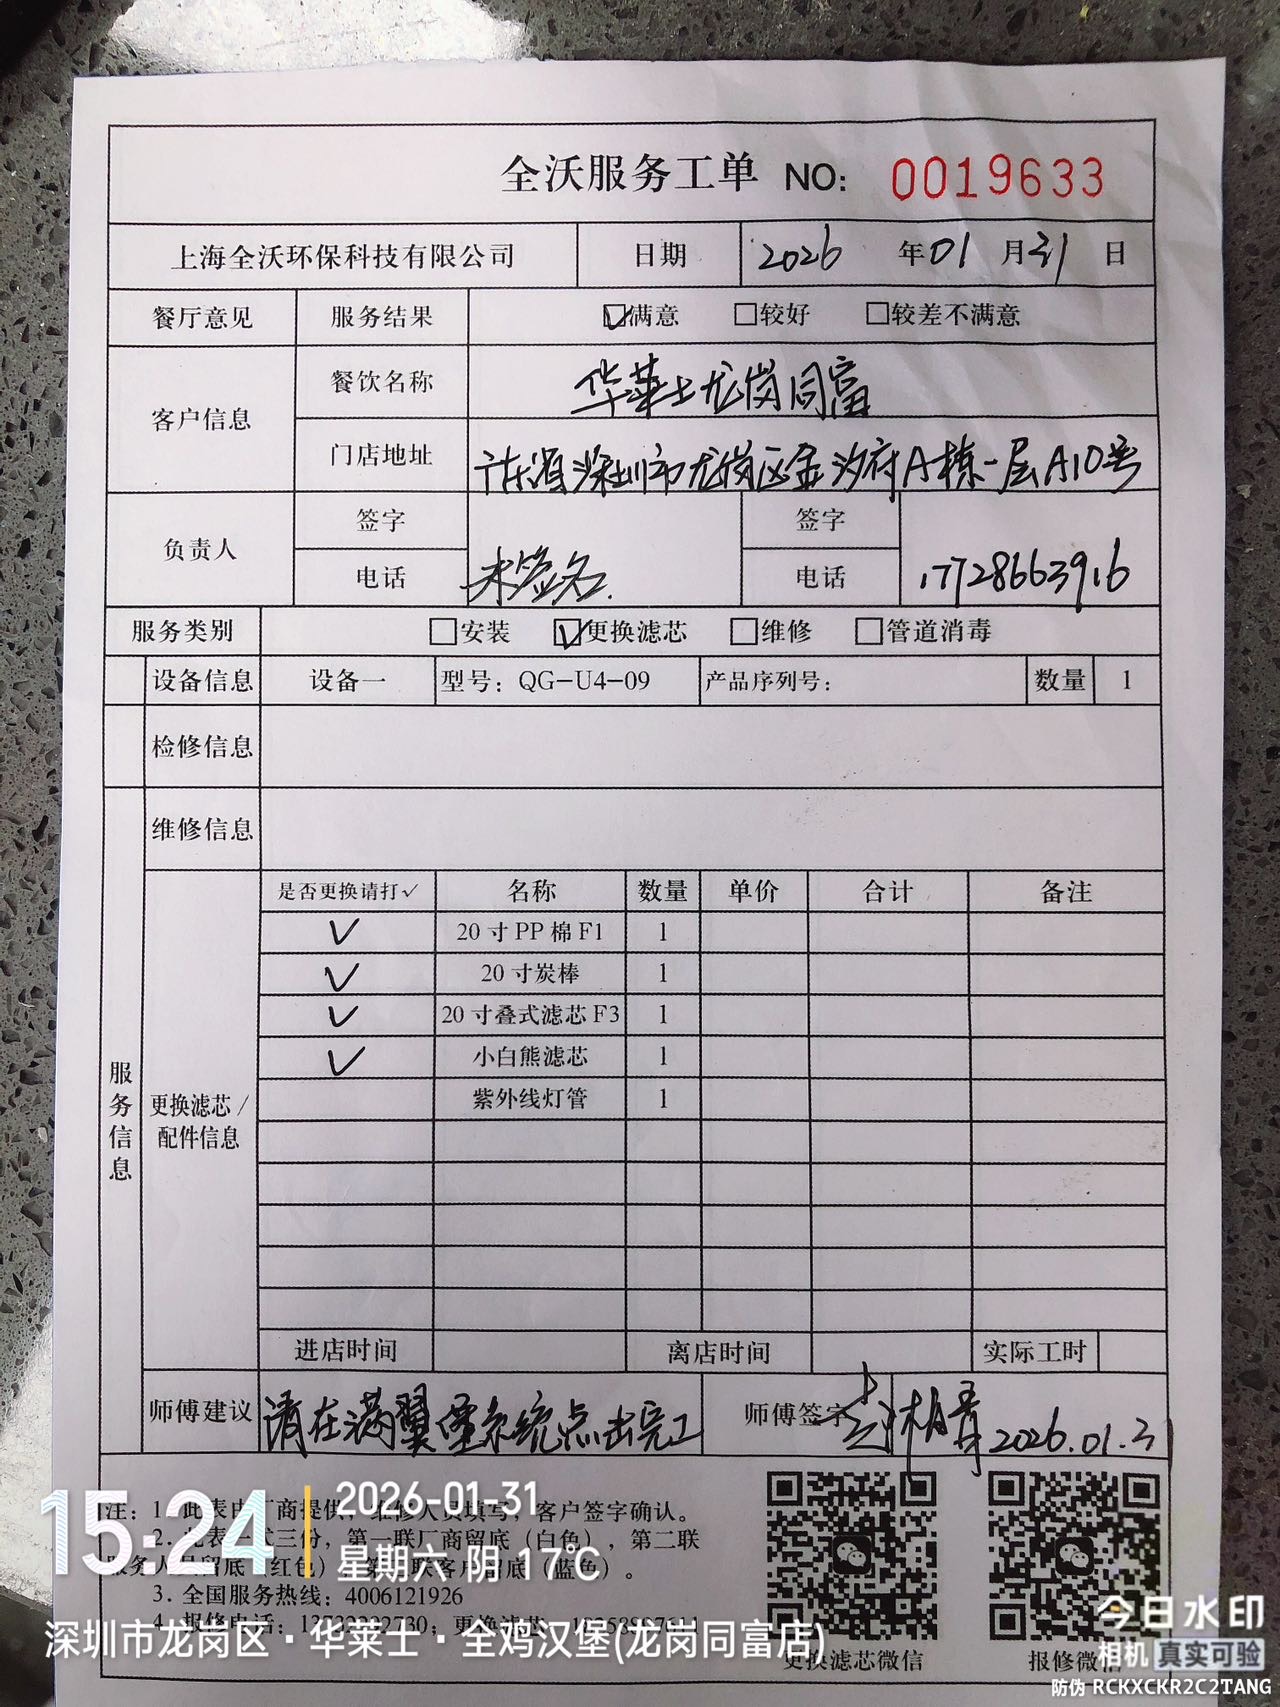 全沃服务工单 NO: 0019633
上海全沃环保科技有限公司 日期 2026 年 01 月 31 日
餐厅意见 服务结果 ☑满意 □较好 □较差不满意
客户信息 餐饮名称 华莱士龙岗同富
门店地址 广东省深圳市龙岗区金汐府A栋一层A10号
负责人 签字 签字
电话 未签名. 电话 17728663916
服务类别 □安装 ☑更换滤芯 □维修 □管道消毒
设备信息 设备一 型号: QG-U4-09 产品序列号: 数量 1
检修信息
维修信息
是否更换请打✓ 名称 数量 单价 合计 备注
✓ 20寸PP棉F1 1
✓ 20寸炭棒 1
✓ 20寸叠式滤芯F3 1
✓ 小白熊滤芯 1
紫外线灯管 1
服务信息
更换滤芯/
配件信息
进店时间 离店时间 实际工时
师傅建议 请在满翼 系统点击完工 师傅签字 2026.01.31
注: 1. 此表由厂商提供, 维修人员填写, 客户签字确认。
2. 此表一式三份, 第一联厂商留底(白色), 第二联
服务人员留底(红色), 第三联客户留底(蓝色)。
3. 全国服务热线: 4006121926
4. 报修电话: 更换滤芯:
更换滤芯微信 报修微信
15:24 2026-01-31
星期六 阴 17℃
深圳市龙岗区·华莱士·全鸡汉堡(龙岗同富店)
今日水印
相机 真实可验
防伪 RCKXCKR2C2TANG